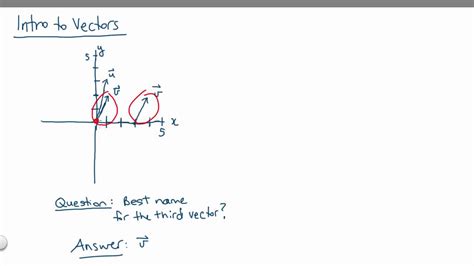 Intro to Vectors
y
5
u⃗
v⃗
v⃗
x
5
Question: Best name
for the third vector?
Answer: v⃗